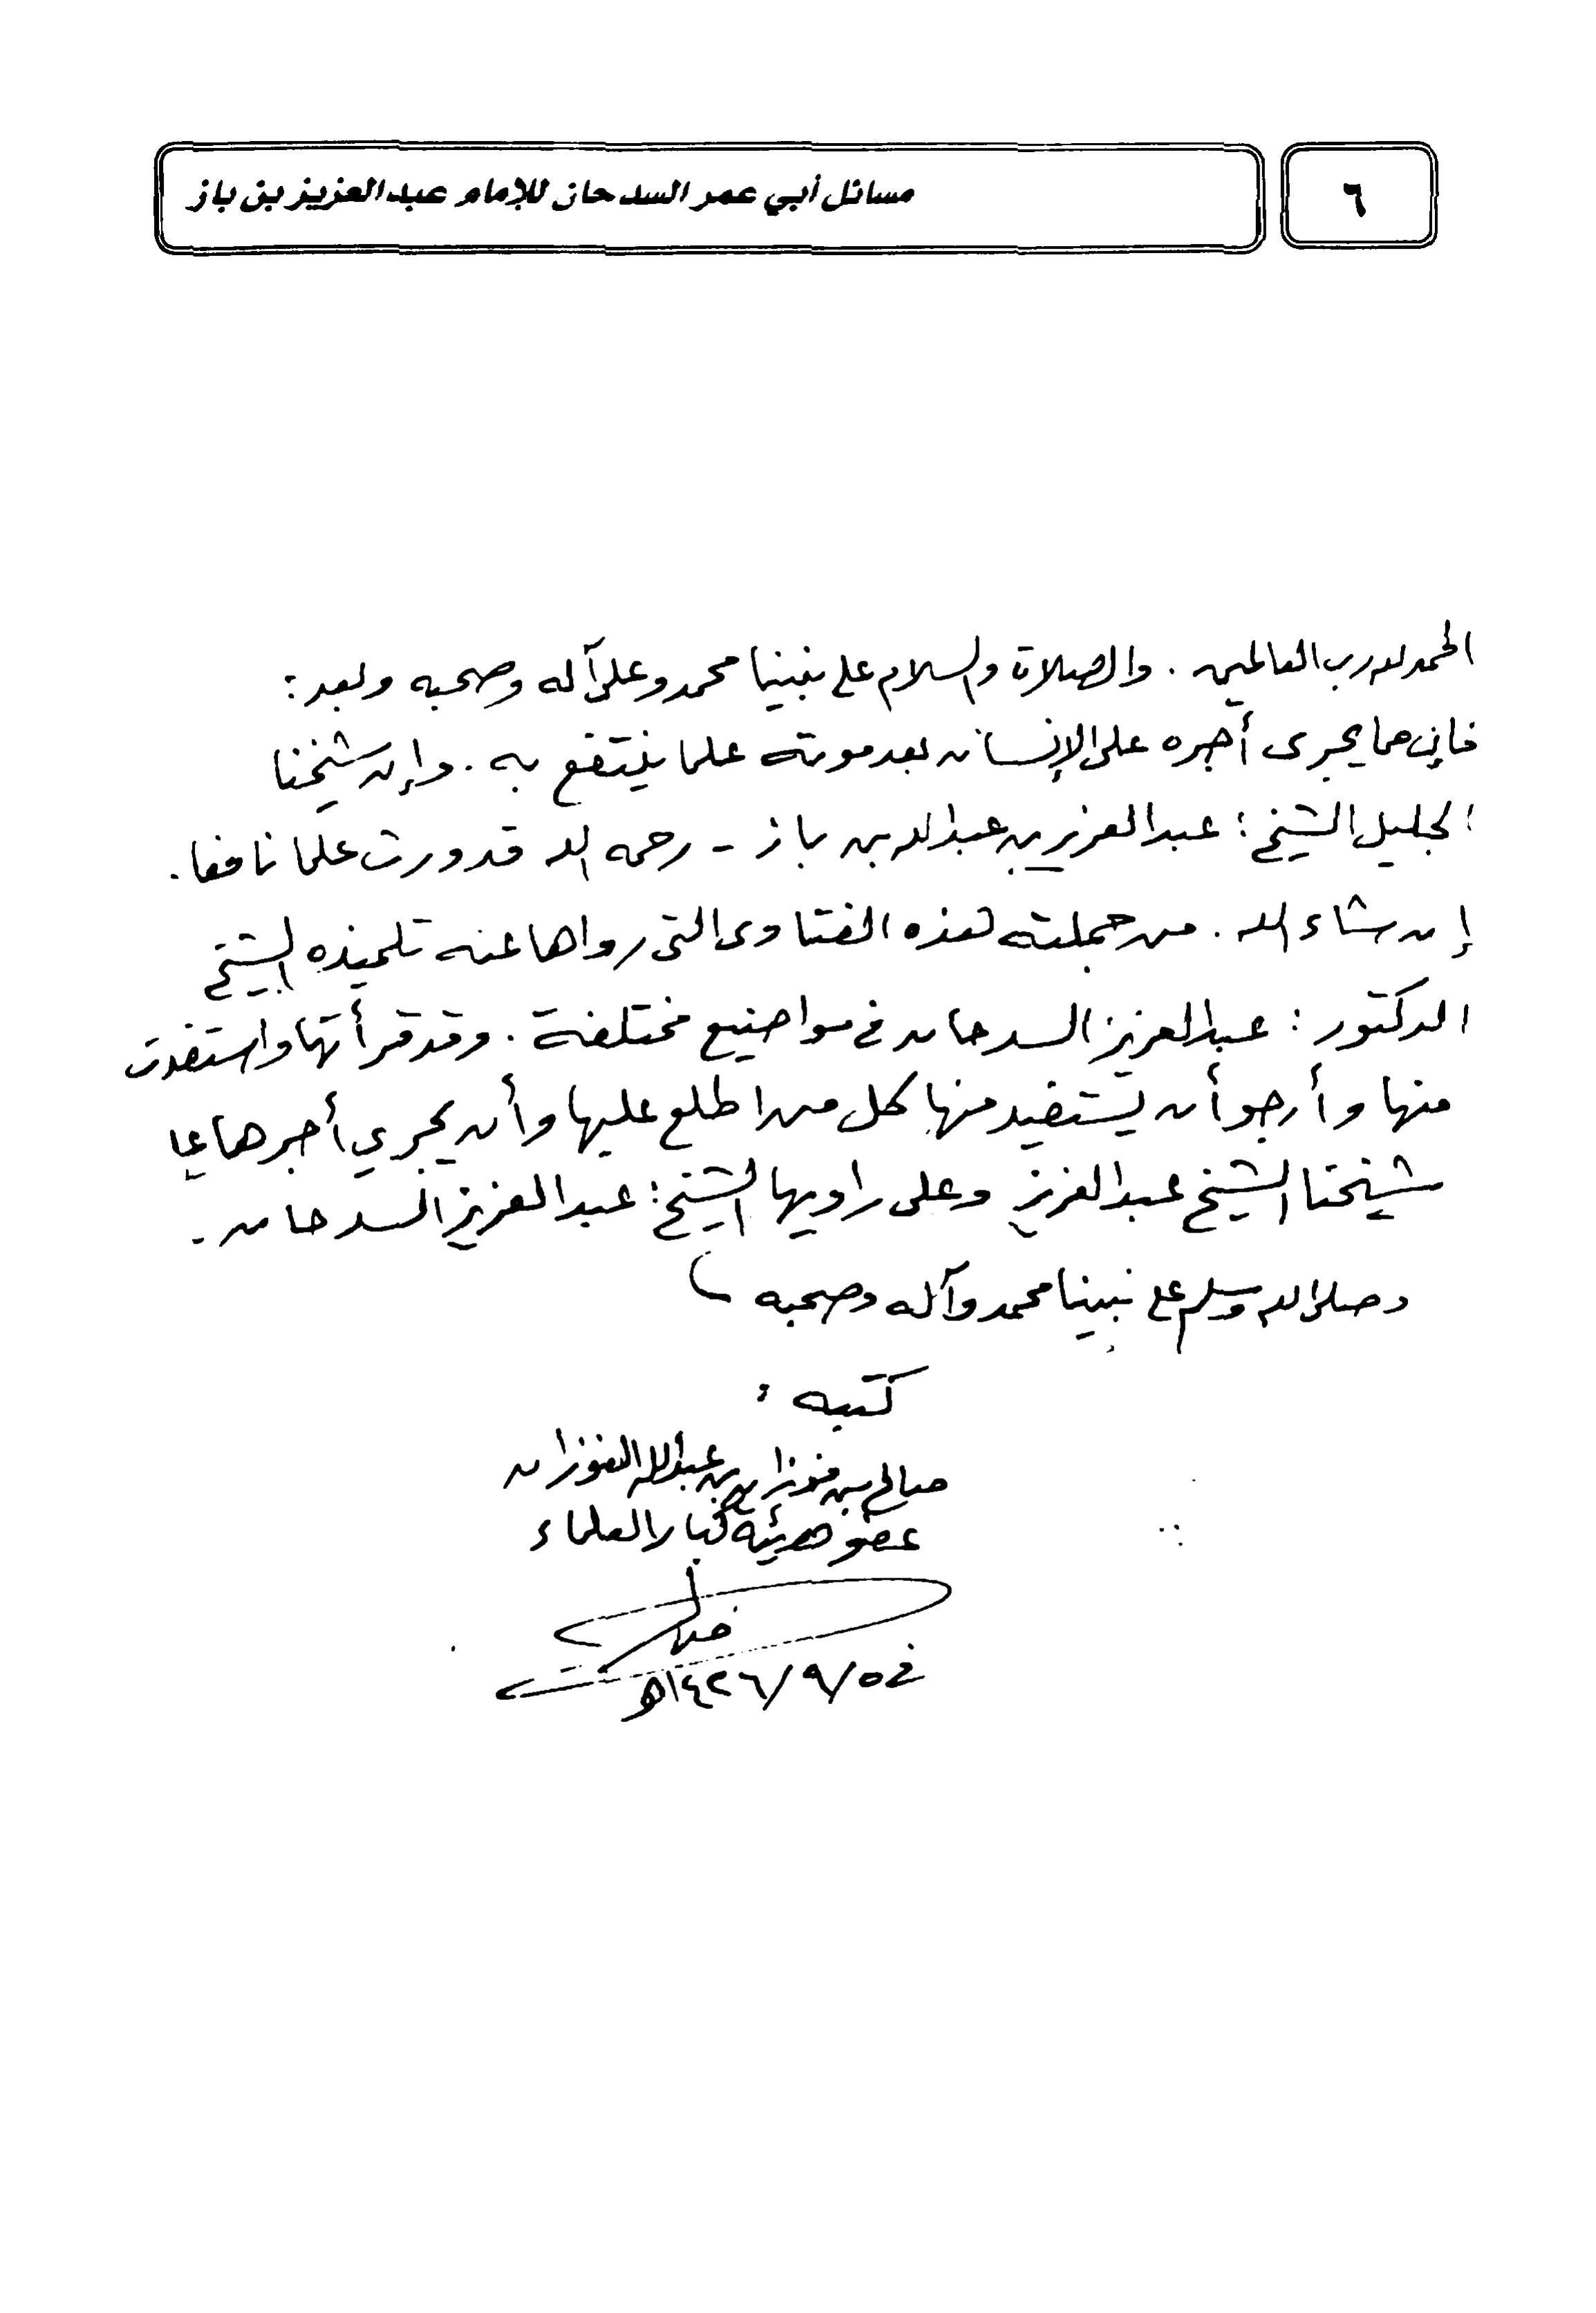 ٦
مسائل أبي عمر السدحان للإمام عبدالعزيز بن باز
الحمد لله رب العالمين . والصلاة والسلام على نبينا محمد وعلى آله وصحبه وبعد :
فإن مما يجرى أجره على الإنسان بعد موته علما ينتفع به . وإن شيخنا
الجليل الشيخ : عبد العزيز بن عبد الله بن باز - رحمه الله قد ورث علما نافعا .
إن شاء الله . من جملته هذه الفتاوى التى رواها عنه تلميذه الشيخ
الدكتور : عبد العزيز السدحان في مواضيع مختلفة . وقد قرأتها واستفدت
منها وأرجو أن يستفيد منها كل من اطلع عليها وأن يجري أجرها على
شيخنا الشيخ عبد العزيز وعلى راويها الشيخ : عبد العزيز السدحان .
وصلى الله وسلم على نبينا محمد وآله وصحبه
كتبه :
صالح بن فوزان بن عبد الله الفوزان
عضو هيئة كبار العلماء
في ٥/ ٩/ ١٤٢٦هـ